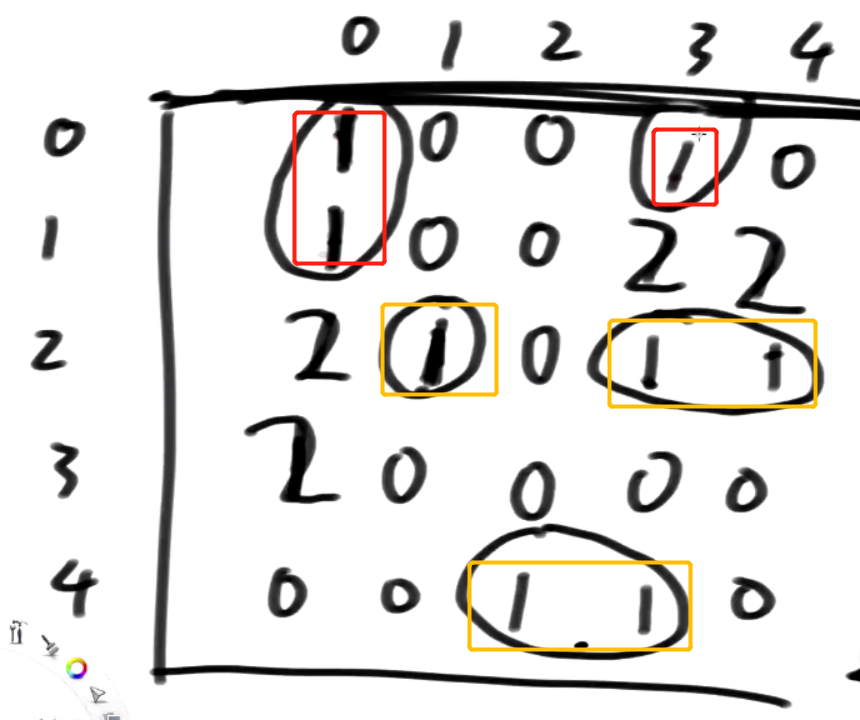 0 1 2 3 4
0 1 0 0 1 0
1 1 0 0 2 2
2 2 1 0 1 1
3 2 0 0 0 0
4 0 0 1 1 0